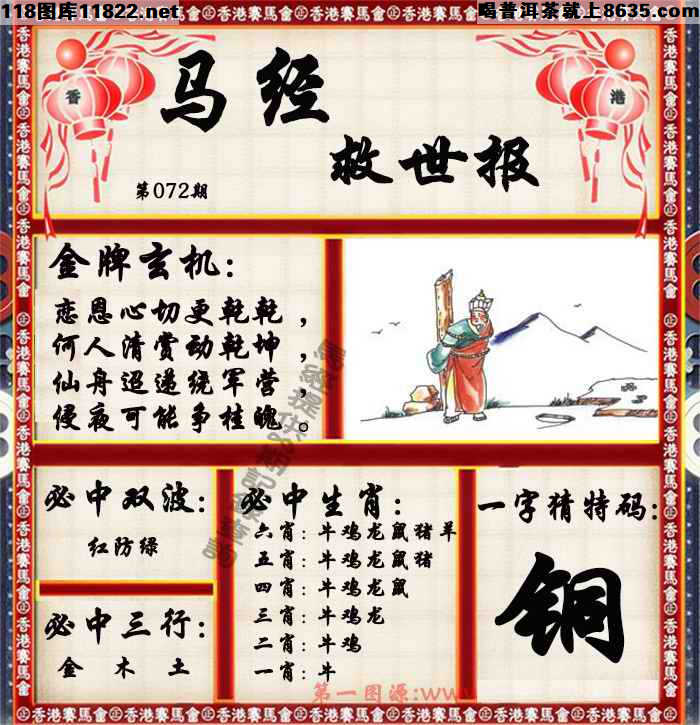 118图库11822.net
喝普洱茶就上8635.com
香
港
马经
救世报
第072期
金牌玄机：
恋恩心切更乾乾，
何人清赏动乾坤，
仙舟迢递绕军营，
侵夜可能争桂魄。
必中双波：
红防绿
必中三行：
金 木 土
必中生肖：
六肖：牛鸡龙鼠猪羊
五肖：牛鸡龙鼠猪
四肖：牛鸡龙鼠
三肖：牛鸡龙
二肖：牛鸡
一肖：牛
一字猜特码：
铜
第一图源:www
香港賽馬會